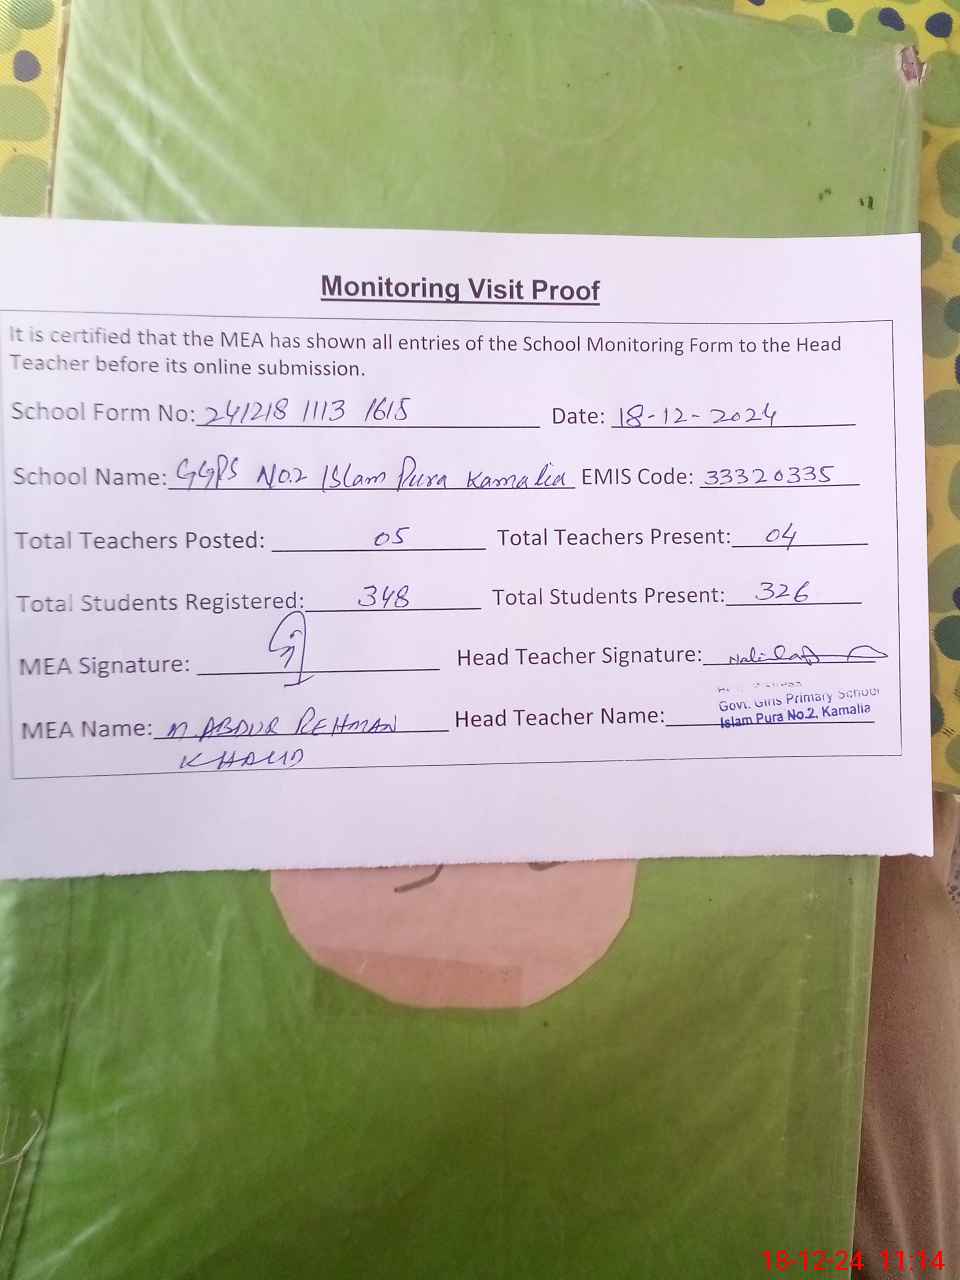 Monitoring Visit Proof
It is certified that the MEA has shown all entries of the School Monitoring Form to the Head
Teacher before its online submission.
School Form No: 241218 1113 1615 Date: 18-12-2024
School Name: GGPS No.2 Islam Pura Kamalia EMIS Code: 33320335
Total Teachers Posted: 05 Total Teachers Present: 04
Total Students Registered: 348 Total Students Present: 326
MEA Signature: Head Teacher Signature:
MEA Name: M ABDUR REHMAN Head Teacher Name:
KHALID
Govt. Girls Primary School
Islam Pura No.2, Kamalia
18-12-24 11:14